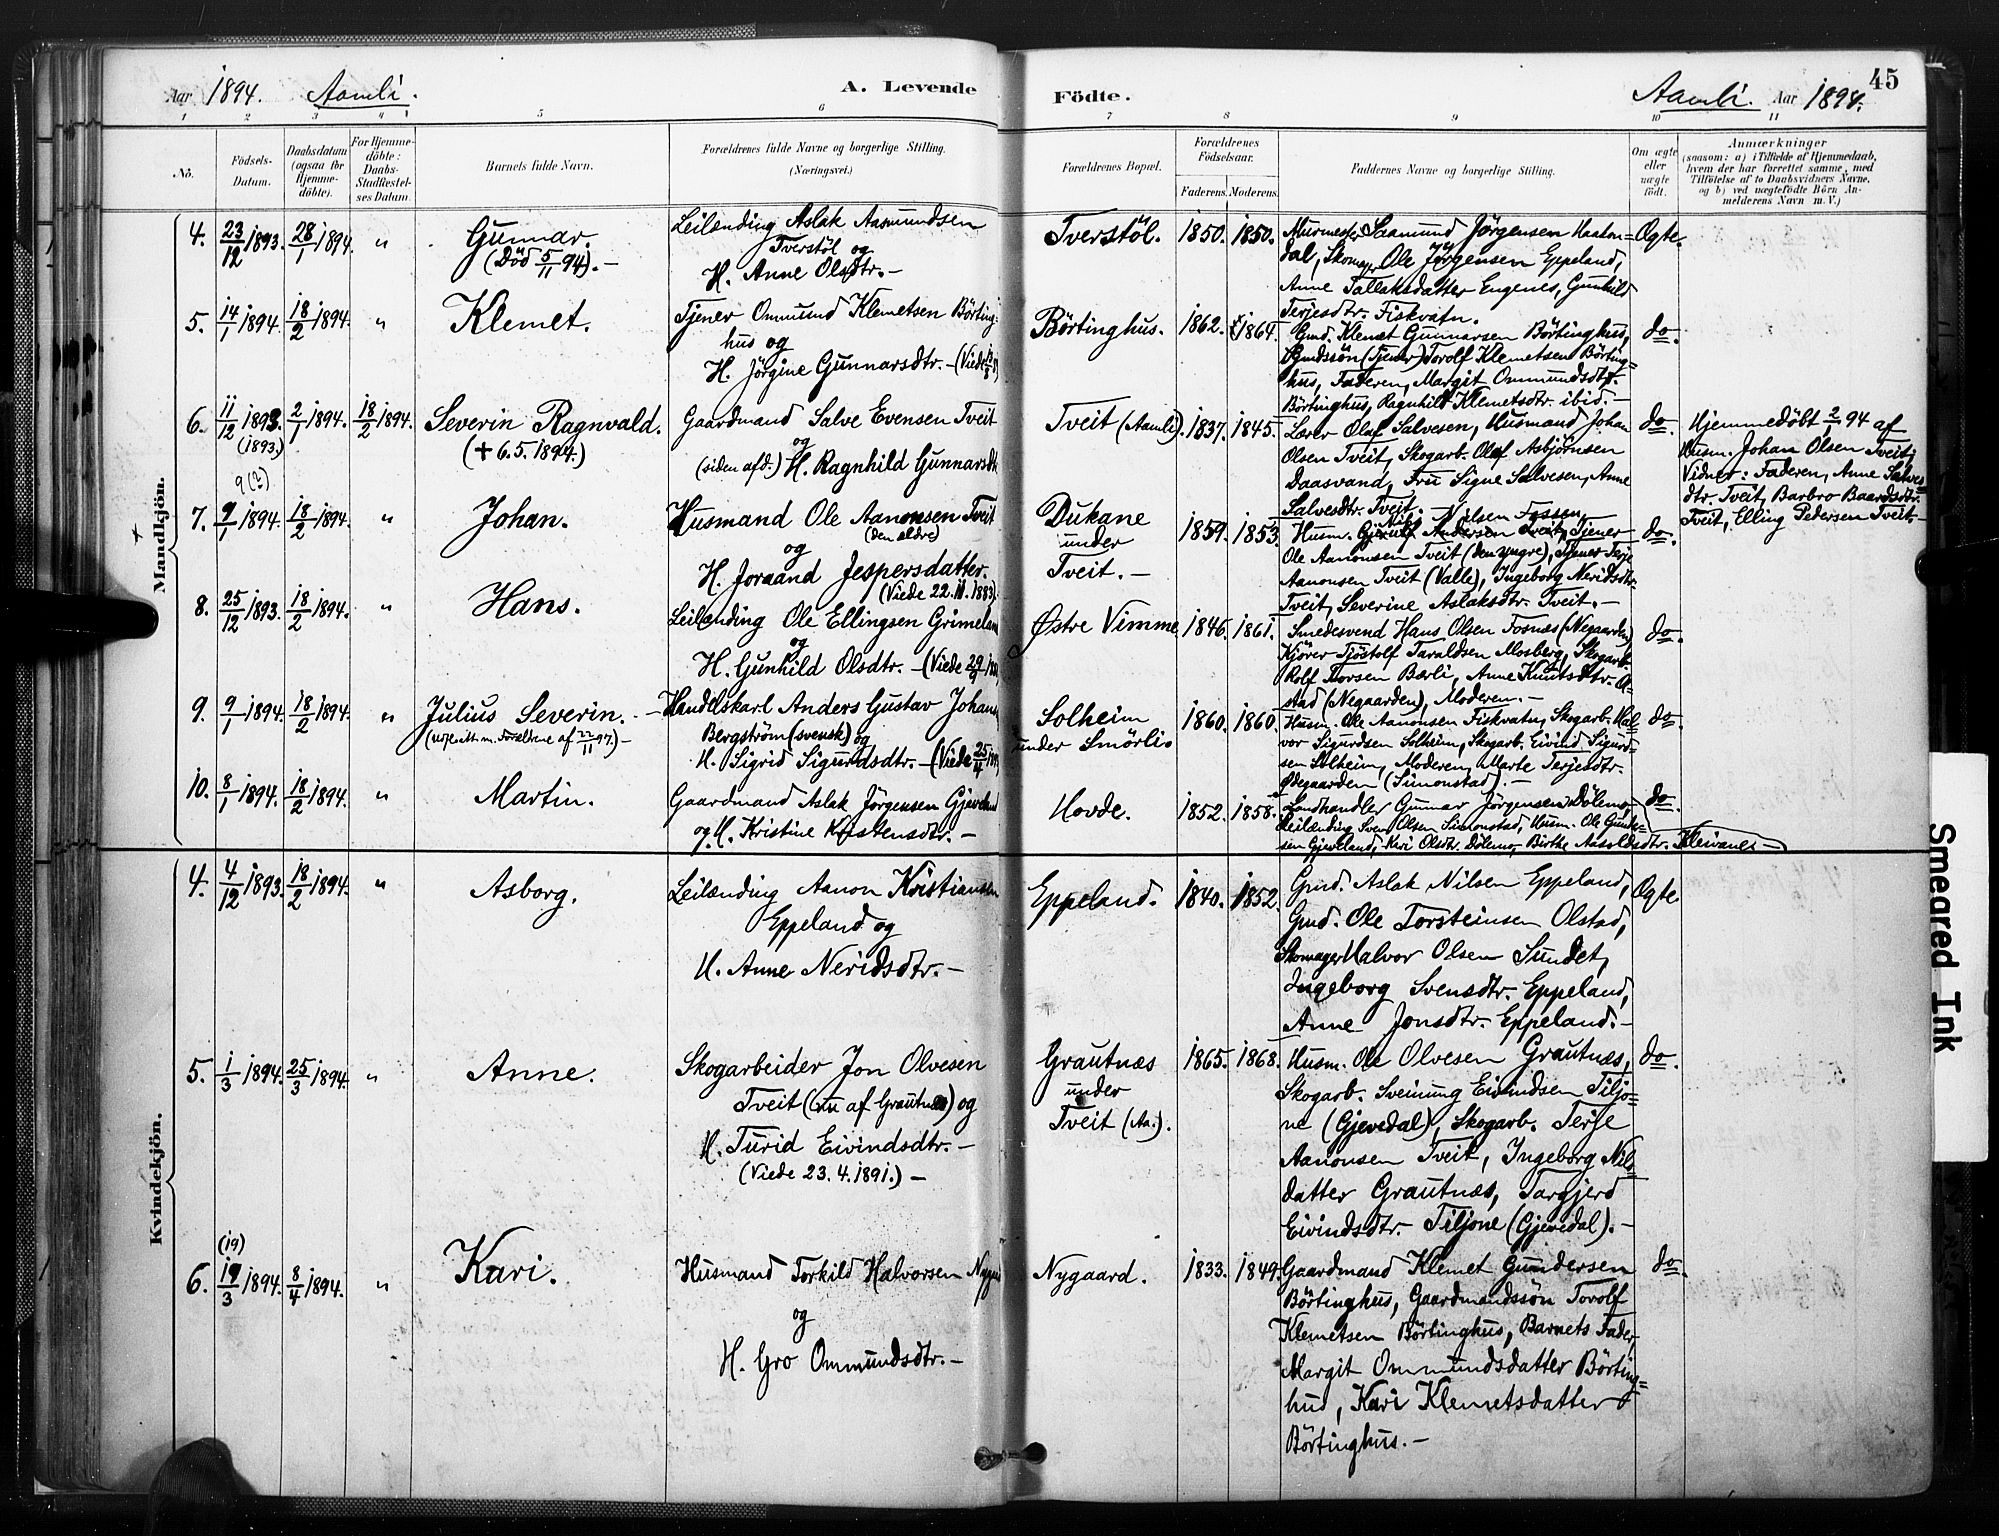 Aar 1894. Aamli. A. Levende
Födte. Aamli. Aar 1894. 45
1 2 3 4 5 6 7 8 9 10 11
No.
Födsels-Datum.
Daabsdatum (ogsaa for Hjemmedöbte).
For Hjemmedöbte: Daabs-Stadfæstelses Datum.
Barnets fulde Navn.
Forældrenes fulde Navne og borgerlige Stilling.
(Næringsvei.)
Forældrenes Bopæl.
Forældrenes Födselsaar.
Faderens. Moderens.
Faddernes Navne og borgerlige Stilling.
Om ægte eller uægte födt.
Anmærkninger
(saasom: a) i Tilfælde af Hjemmedaab,
hvem der har forrettet samme, med
Tilföielse af to Daabsvidners Navne,
og b) ved uægtefödte Börn An-
melderens Navn m. V.)
Mandkjön.
4. 23/12 1893. 28/1 1894. " Gunnar.
(Död 5/11 94). –
Leilænding Aslak Aasmundsen
Tverstöl og
H. Anne Olsdtr. –
Tverstöl. 1850. 1850.
Murmester Saamund Jörgensen Haaton=
dal, Skomager Ole Jörgensen Eppeland,
Anne Tallaksdatter Engenes, Gunhild
Terjesdtr. Fiskvatn.
Ægte.
5. 14/1 1894. 18/2 1894. " Klemet.
Tjener Ommund Klemetsen Börting-
hus og
H. Jörgine Gunnarsdtr. –
Börtinghus. 1862. 1864.
Gmd. Klemet Gunnarsen Börtinghus,
Gmdssön (Tjener) Torolf Klemetsen Börting=
hus, Faderen, Margit Ommundsdtr.
Börtinghus, Ragnhild Klemetsdtr. ibid. –
do.
6. 11/12 1893. (1893.) 2/1 1894. 18/2 1894. Severin Ragnvald.
(+ 6.5.1894.)
Gaardmand Salve Evensen Tveit
og
(siden afd.) H. Ragnhild Gunnarsdt
Tveit (Aamli). 1837. 1845.
Lærer Olaf Salvesen, Husmand Johan
Olsen Tveit, Skogarb. Olaf Asbjörnsen
Daasvand, Fru Signe Salvesen, Anne
Salvesdtr. Tveit. –
do.
Hjemmedöbt 2/1 94 af
Husm. Johan Olsen Tveit;
Vidner: Faderen, Anne Salves=
dtr. Tveit, Barbro Baardsdtr.
Tveit, Elling Pedersen Tveit. –
9 (?)
7. 9/1 1894. 18/2 1894. " Johan.
Husmand Ole Aanonsen Tveit
(den ældre)
og
H. Joraand Jespersdatter.
(Viede 22.11.1883).
Dukane
under
Tveit. –
1859. 1853.
Nilsen Fossen,
Husm. Andersen Tveit, Tjener
Ole Aanonsen Tveit (den yngre), Tjener Terje
Aanonsen Tveit (Valle), Ingeborg Neridsdtr.
Tveit, Severine Aslaksdtr. Tveit. –
do.
8. 25/12 1893. 18/2 1894. " Hans.
Leilænding Ole Ellingsen Grimeland
og
H. Gunhild Olsdtr. –
Østre Vimme 1846. 1861.
Smedesvend Hans Olsen Fosnæs (Negaarden)
Kjörer Tjöstolf Taraldsen Mosberg, Skogarb.
Rolf Torsen Berli, Anne Knutsdtr. Ol-
stad (Negaarden), Moderen. –
do.
9. 9/1 1894. 18/2 1894. " Julius Severin. –
(Udfl. att. m. Forældrene af 22/11 97.) –
Handelskarl Anders Gustav Johans
Bergström (svensk) og
H. Sigrid Sigurdsdtr. –
Solheim
under Smörli.
1860. 1860.
Husm. Ole Aanonsen Fiskvatn, Skogarb. Hal=
vor Sigurdsen Solheim, Skogarb. Eivind Sigurd=
sen Solheim, Moderen, Marte Terjesdtr.
Ødegaarden (Simonstad). –
do.
10. 8/1 1894. 18/2 1894. " Martin.
Gaardmand Aslak Jörgensen Gjeveland
og H. Kristine Kristensdtr. –
Hovde. 1852. 1858.
Landhandler Gunnar Jörgensen Dölemo,
Leilænding Sven Olsen Simonstad, Husm. Ole Gunder-
sen Gjeveland, Kari Olsdtr. Dölemo, Birthe Aasoldsdtr. Kleivanes –
do.
Kvindekjön.
4. 4/12 1893. 18/2 1894. " Asborg.
Leilænding Aanon Kristiansen
Eppeland og
H. Anne Neridsdtr. –
Eppeland. 1840. 1852.
Gmd. Aslak Nilsen Eppeland,
Gmd. Ole Torsteinsen Olstad,
Skomager Halvor Olsen Sundet,
Ingeborg Svensdtr. Eppeland,
Anne Jonsdtr. Eppeland. –
Ægte.
5. 1/3 1894. 25/3 1894. " Anne.
Skogarbeider Jon Olvesen
Tveit (nu af Grautnæs) og
H. Turid Eivindsdtr. –
(Viede 23.4.1891.) –
Grautnæs
under
Tveit (Aa.).
1865. 1868.
Husm. Ole Olvesen Grautnæs,
Skogarb. Sveinung Eivindsen Tiljo=
ne (Gjevedal), Skogarb. Terje
Aanonsen Tveit, Ingeborg Nils=
datter Grautnæs, Targjerd
Eivindsdtr. Tiljone (Gjevedal). –
do.
(19)
6. 19/3 1894. 8/4 1894. " Kari.
Husmand Torkild Halvorsen Nygaard
og
H. Gro Ommundsdtr. –
Nygaard. 1833. 1849.
Gaardmand Klemet Gundersen
Börtinghus, Gaardmandssön Torolf
Klemetsen Börtinghus, Barnets Fader,
Margit Ommundsdatter Börting=
hus, Kari Klemetsdatter
Börtinghus. –
do.
Smeared Ink